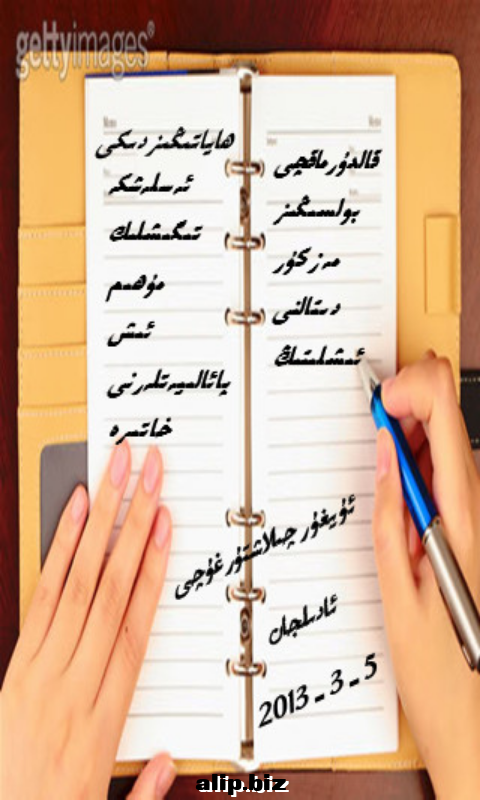 gettyimages®
ھاياتىڭىزدىكى
ئەسلەشكە
تىگىشلىك
مۇھىم
ئىش
پائالىيەتلەرنى
خاتىرە
قالدۇرماقچى
بولسىڭىز
مەزكۇر
دىتالنى
ئىشلىتىڭ
ئۇيغۇر چىلاشتۇرغۇچى
ئادىلجان
2013 - 3 - 5
alip.biz